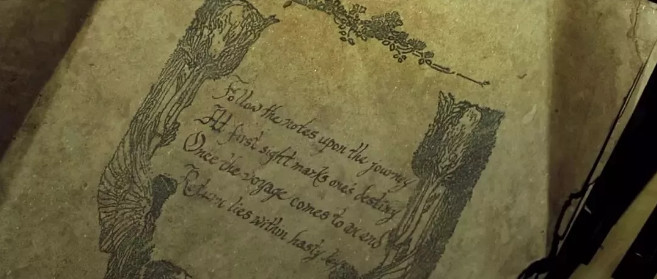 Follow the notes upon the journey
At first sight marks one's destiny
Once the voyage comes to an end
Return lies within hasty